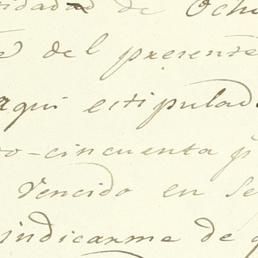 sidad de Och
e del presente
aqui estipulad
o-cincuenta p
Vencido en Se
indicarme de q